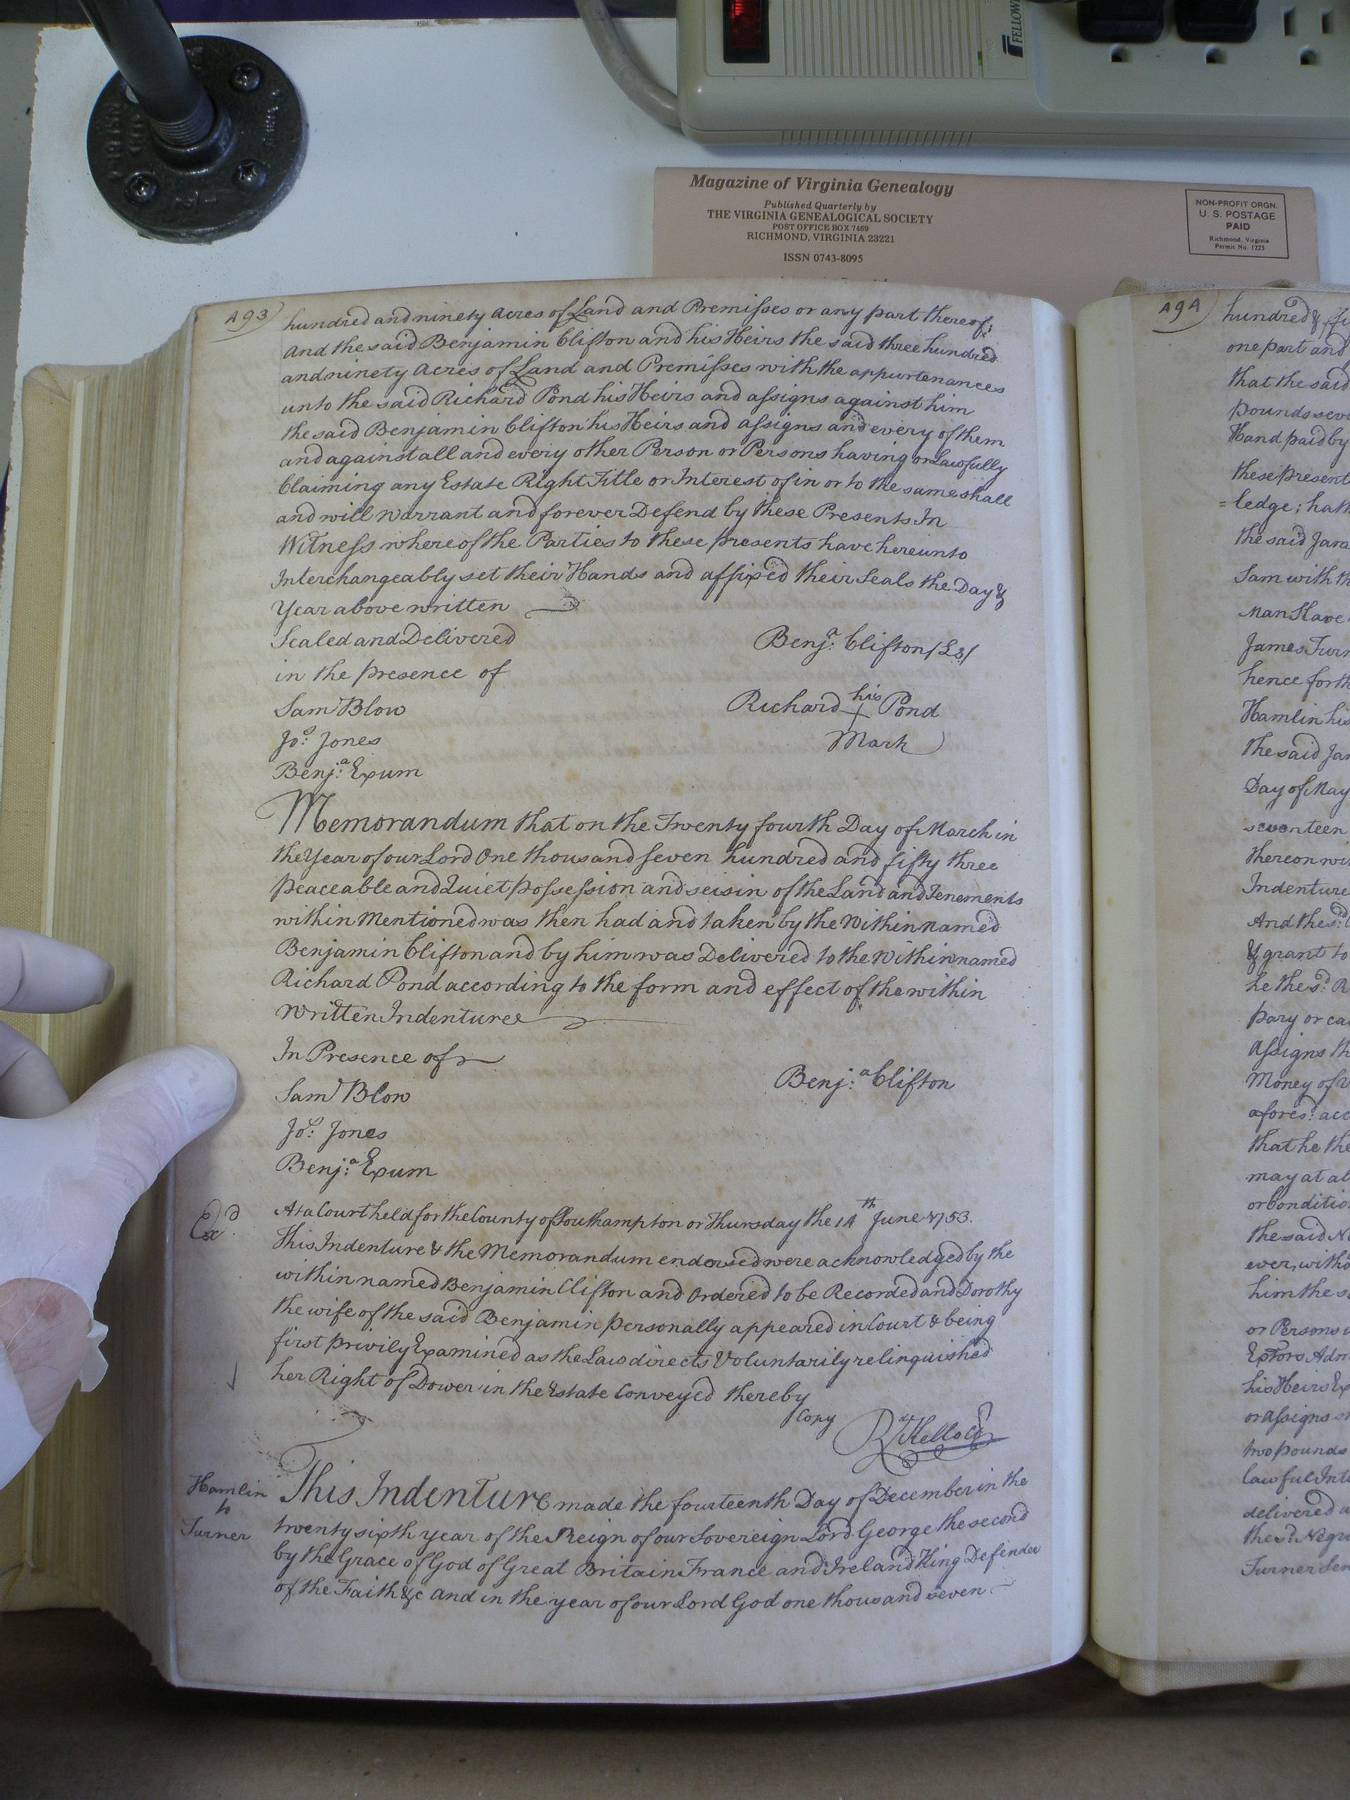 FELLOW
Magazine of Virginia Genealogy
Published Quarterly by
THE VIRGINIA GENEALOGICAL SOCIETY
POST OFFICE BOX 7469
RICHMOND, VIRGINIA 23221
ISSN 0743-8095
NON-PROFIT ORGN.
U. S. POSTAGE
PAID
Richmond, Virginia
Permit No. 1225
493
hundred and ninety Acres of Land and Premisses or any part thereof;
And the said Benjamin Clifton and his Heirs the said three hundred
and ninety Acres of Land and Premisses with the appurtenances
unto the said Richard Pond his Heirs and assigns against him
the said Benjamin Clifton his Heirs and assigns and every of them
and against all and every other Person or Persons having or Lawfully
Claiming any Estate Right Title or Interest of in or to the same shall
and will warrant and forever Defend by these Presents In
Witness whereof the Parties to these presents have hereunto
Interchangeably set their Hands and affixed their Seals the Day &
Year above written
Sealed and Delivered
in the presence of
Benj.a Clifton (Ls)
Sam.l Blow
Richard his Pond
Jo.s Jones
Mark
Benj.a Exum
Memorandum that on the Twenty fourth Day of March in
the Year of our Lord One thousand seven hundred and fifty three
peaceable and Quiet possession and seisin of the Land and Tenements
within Mentioned was then had and taken by the Within named
Benjamin Clifton and by him was Delivered to the Within named
Richard Pond according to the form and effect of the within
Written Indenture
In Presence of
Benj.a Clifton
Sam.l Blow
Jo.s Jones
Benj.a Exum
Ex.d
At a Court held for the County of Southampton or Thursday the 14th June 1753.
This Indenture & the Memorandum endorsed were acknowledged by the
within named Benjamin Clifton and Ordered to be Recorded and Dorothy
the wife of the said Benjamin personally appeared in Court & being
first privily Examined as the Law directs Voluntarily relinquished
her Right of Dower in the Estate Conveyed thereby
Copy
R.d Kello Cl
Hamlin
to
Turner
This Indenture made the fourteenth Day of December in the
twenty sixth year of the Reign of our Sovereign Lord George the second
by the Grace of God of Great Britain France and Ireland King Defender
of the Faith &c and in the year of our Lord God one thousand seven
494
hundred &
one part and
that the said
pounds
Hand paid by
these present
=ledge; hath
the said
Sam with th
Man Slave
James Turn
hence forth
Hamlin his
the said Jam
Day of May
seventeen
thereon
Indenture
And the s.d
& grant to
he the s.d R
pary or ca
Assigns th
Money of
afores.d acc
that he the
may at al
or Conditio
the said N
ever, witho
him the s
or Persons
Ex.tors Adm
his Heirs Ex
or Assigns
two pounds
lawful Int
delivered a
the s.d Negr
Turner Sen